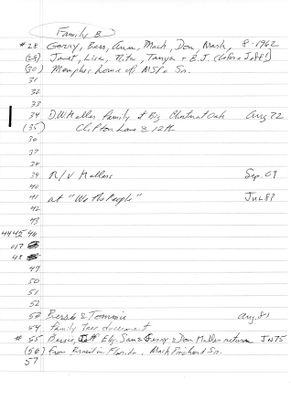 Family B
#28 Gerry, Bess, Anna, Mack, Don, Mack, 8-1962
(29) Janet, Lisa, Rita, Tanya + B.J. (before Jeff)
(30) Memphis home of Sr.
31
32
33
34 D.W. Mullen Family & Big Chestnut Oak Aug 72
(35) Clifton Lane & 12th
36
37
38
39 R/V Mullens Sep. 09
40
41 at "We The People" Jul 83
42
43
44 45 46
47
48
49
50
51
52
53 & Tommie Aug. 83
54 Family Tree document
# 55 Jeff Gerry & Don Mullen return JN75
(56) From Brazil in Florida, Mack Sr.
57